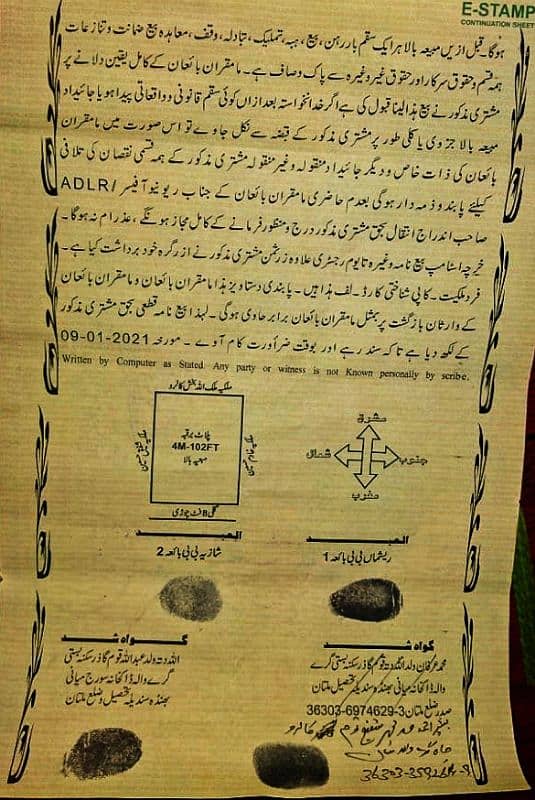 E-STAMP
CONTINUATION SHEET
ہوگا۔ قبل ازیں مبیعہ بالا ہر ایک سقم بار رہن، بیع، ہبہ، تملیک، تبادلہ، وقف، معاہدہ بیع ضمانت و تنازعات
ہمہ قسم و حقوق سرکار اور حقوق غیر وغیرہ سے پاک وصاف ہے۔ مامقران بائعان کے کامل یقین دلانے پر
مشتری مذکور نے بیع ہذا لینا قبول کی ہے اگر خدانخواستہ بعد ازاں کوئی سقم قانونی و واقعاتی پیدا ہو یا جائیداد
مبیعہ بالا جزوی یا کلی طور پر مشتری مذکور کے قبضہ سے نکل جاوے تو اس صورت میں مامقران
بائعان کی ذات خاص و دیگر جائیداد منقولہ وغیر منقولہ مشتری مذکور کے ہمہ قسمی نقصان کی تلافی
کیلئے پابند و ذمہ دار ہوگی بعدم حاضری مامقران بائعان کے جناب ریونیو آفیسر / ADLR
صاحب اندراج انتقال بحق مشتری مذکور درج و منظور فرمانے کے کامل مجاز ہونگے، عذرام نہ ہوگا۔
خرچہ اسٹامپ بیع نامہ وغیرہ تا یوم رجسٹری علاوہ زرثمن مشتری مذکور نے از گرہ خود برداشت کیا ہے۔
فرد ملکیت۔ کاپی شناختی کارڈ۔ لف ہذا ہیں۔ پابندی دستاویز ہذا مامقران بائعان و مامقران بائعان
کے وارثان بازگشت پر بمثل مامقران بائعان برابر حاوی ہوگی۔ لہذا بیع نامہ قطعی بحق مشتری مذکور
کے لکھ دیا ہے تاکہ سند رہے اور بوقت ضرورت کام آوے۔ مورخہ 09-01-2021
Written by Computer as Stated. Any party or witness is not Known personally by scribe.
مشرق
پلاٹ برقبہ
4M-102FT
مبیعہ بالا
شمال
جنوب
مغرب
گلی 8 فٹ چوڑی
العبد
ریشماں بی بی بائعہ 1
العبد
شازیہ بی بی بائعہ 2
گواہ شد
محمد عرفان ولد اللہ دتہ قوم گاذر سکنہ بستی گرے
والہ ڈاکخانہ میانی بھنڈہ سندیلہ تحصیل ملتان
صدر ضلع ملتان 36303-6974629-3
گواہ شد
اللہ دتہ ولد عبداللہ قوم گاذر سکنہ بستی
گرے والہ ڈاکخانہ سورج میانی
بھنڈہ سندیلہ تحصیل و ضلع ملتان